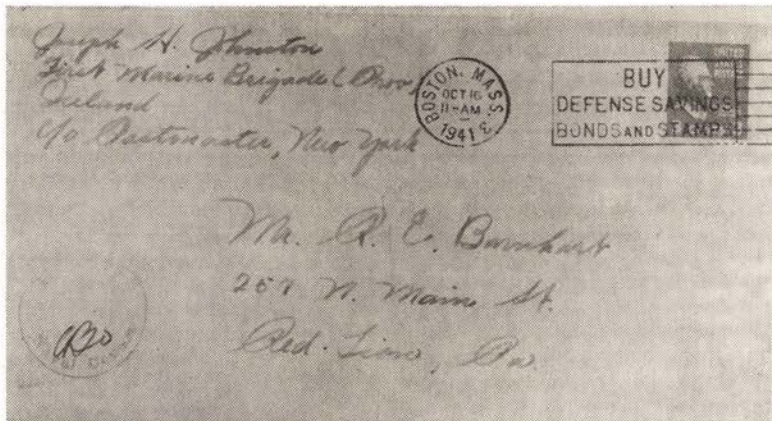 Joseph H. Johnston
First Marine Brigade (Prov)
Iceland
c/o Postmaster, New York
BOSTON, MASS.
OCT 16
11-AM
1941
BUY
DEFENSE SAVINGS
BONDS AND STAMPS
UNITED
STATES
Mr. R. E. Barnhart
257 N. Main St.
Red Lion, Pa